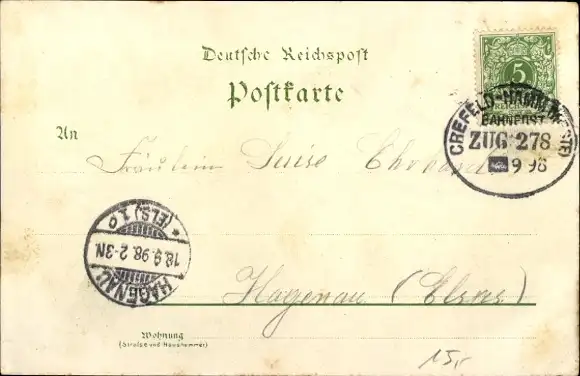 Deutsche Reichspost
Postkarte
5
CREFELD-HAMM (WESTF)
BAHNPOST
ZUG 278
9 98
An Fräulein Luise
HAGENAU
* (ELS) 1 0
18.9.98.2-3N.
Hagenau (Elsass)
Wohnung
(Strasse und Hausnummer)
15,-